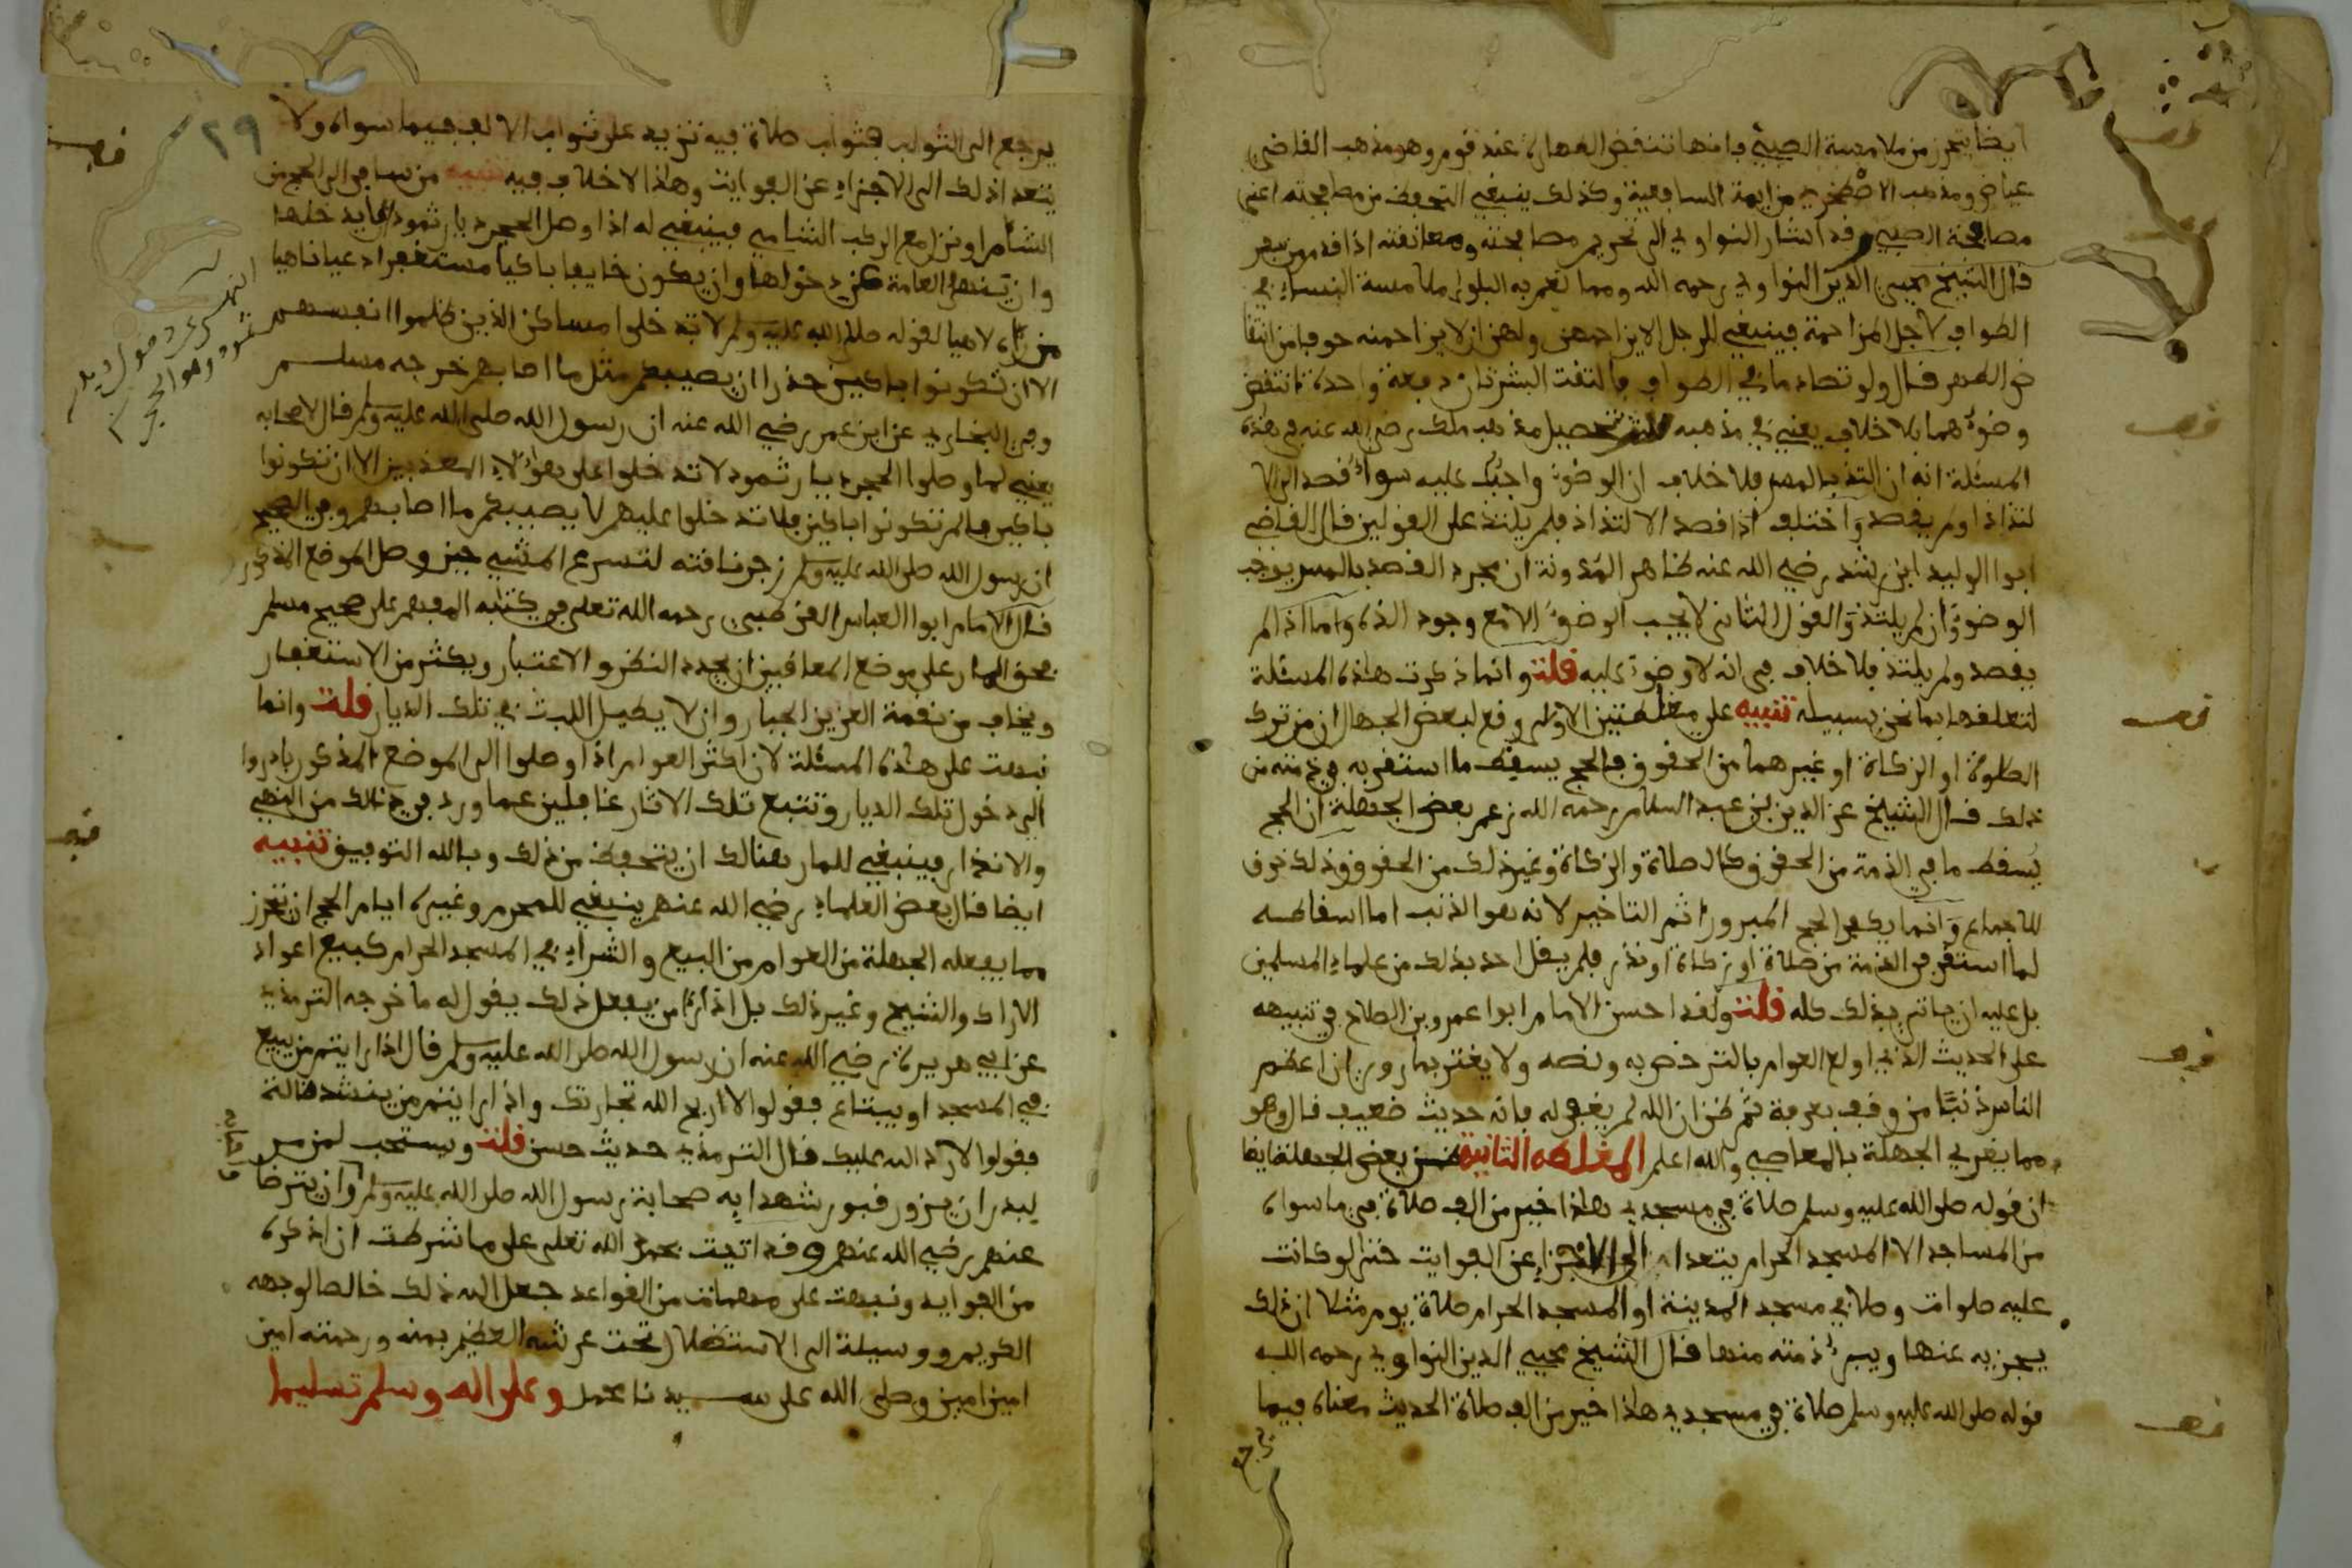 ايضا يتحرز من ملامسة الصبي فانها تنقض الطهارة عند قوم وهو مذهب القاضي
عياض ومذهب الاصطخري من ايمة الشافعية وكذلك ينبغي التحفظ من مصافحته اعني
مصافحة الصبي وقد اشار النواوي الى تحريم مصافحته ومعانقته اذا قدم من سفر
قال الشيخ محيي الدين النواوي رحمه الله ومما تعم به البلوى ملامسة النساء في
الطواف لاجل المزاحمة فينبغي للرجل الا يزاحمهن ولهن ان لا يزاحمنه خوفا من انتقا
ض الطهر قال ولو تصادما في الطواف فالتقت البشرتان دفعة واحدة انتقض
وضوءهما بلا خلاف يعني في مذهبه تحصيل مذهب ملك رضي الله عنه في هذه
المسئلة انه ان التذ بالمس فلا خلاف ان الوضوء واجب عليه سواء قصد الى الا
لتذاذ او لم يقصد واختلف اذا قصد الالتذاذ فلم يلتذ على القولين قال القاضي
ابوا الوليد ابن رشد رضي الله عنه ظاهر المدونة ان مجرد القصد بالمس يوجب
الوضوء وان لم يلتذ والقول الثاني لا يجب الوضوء الا مع وجود اللذة واما اذا لم
يقصد ولم يلتذ فلا خلاف في انه لا وضوء عليه قلت وانما ذكرت هذه المسئلة
لتعلقها بما نحن بسبيله تنبيه على مغلطتين الاولى وقع لبعض الجهال ان من ترك
الصلوة او الزكاة او غيرهما من الحقوق فالحج يسقط ما استقر به في ذمته من
ذلك قال الشيخ عز الدين بن عبد السلام رحمه الله زعم بعض الجهلة ان الحج
يسقط ما في الذمة من الحقوق كالصلاة والزكاة وغير ذلك من الحقوق وذلك خرق
للاجماع وانما يكفر الحج المبرور اثم التاخير لانه هو الذنب اما اسقاطه
لما استقر في الذمة من صلاة او زكاة او نذر فلم يقل احد بذلك من علماء المسلمين
بل عليه ان ياتي بذلك كله قلت ولقد احسن الامام ابوا عمرو بن الصلاح في تنبيهه
على الحديث الذي اولع العوام بالترخص به ونصه ولا يغتر بما روي ان اعظم
الناس ذنبا من وقف بعرفة ثم ظن ان الله لم يغفر له فانه حديث ضعيف قال وهو
مما يغري الجهلة بالمعاصي والله اعلم المغلطة الثانية ظن بعض الجهلة ايضا
ان قوله صلى الله عليه وسلم صلاة في مسجدي هذا خير من الف صلاة في ما سواه
من المساجد الا المسجد الحرام يتعدا الى الاجزاء عن الفوايت حتى لو كانت
عليه صلوات وصلا في مسجد المدينة او المسجد الحرام صلاة يوم مثلا ان ذلك
يجزيه عنها ويبرئ ذمته منها قال الشيخ محيي الدين النواوي رحمه الله
قوله صلى الله عليه وسلم صلاة في مسجدي هذا خير من الف صلاة الحديث معناه فيما
٢٩
يرجع الى الثواب فثواب صلاة فيه تزيد على ثواب الالف فيما سواه ولا
يتعدا ذلك الى الاجزاء عن الفوايت وهذا لا خلاف فيه تنبيه من سافر الى الحج من
الشام او نزل مع الركب الشامي فينبغي له اذا وصل الحجر ديار ثمود الا يدخلها
وان ينهى العامة عن دخولها وان يكون خايفا باكيا مستغفرا داعيا ناهيا
من لاهيا لقوله صلى الله عليه وسلم لا تدخلوا مساكن الذين ظلموا انفسهم
الا ان تكونوا باكين حذرا ان يصيبكم مثل ما اصابهم خرجه مسلم
وفي البخاري عن ابن عمر رضي الله عنه ان رسول الله صلى الله عليه وسلم قال لاصحابه
يعني لما وصلوا الحجر ديار ثمود لا تدخلوا على هؤلاء المعذبين الا ان تكونوا
باكين فان لم تكونوا باكين فلا تدخلوا عليهم لا يصيبكم ما اصابهم وفي الصحيح
ان رسول الله صلى الله عليه وسلم زجر ناقته لتسرع المشي حين وصل الموضع المذكور
قال الامام ابوا العباس القرطبي رحمه الله تعلى في كتابه المفهم على صحيح مسلم
فحق المار على موضع المعاقبين ان يجدد النظر والاعتبار ويكثر من الاستغفار
ويخاف من نقمة العزيز الجبار وان لا يطيل اللبث في تلك الديار قلت وانما
نبهت على هذه المسئلة لان اكثر العوام اذا وصلوا الى الموضع المذكور بادروا
الى دخول تلك الديار وتتبع تلك الاثار غافلين عما ورد في ذلك من النهي
والانذار فينبغي للمار هنالك ان يتحفظ من ذلك وبالله التوفيق تنبيه
ايضا قال بعض العلماء رضي الله عنهم ينبغي للمحرم وغيره ايام الحج ان يتحرز
مما يفعله الجهلة من العوام من البيع والشراء في المسجد الحرام كبيع اعواد
الاراك والشيح وغير ذلك بل اذا راى من يفعل ذلك يقول له ما خرجه الترمذي
عن ابي هريرة رضي الله عنه ان رسول الله صلى الله عليه وسلم قال اذا رايتم من يبيع
في المسجد او يبتاع فقولوا لا اربح الله تجارتك واذا رايتم من ينشد ضالة
فقولوا لا رد الله عليك قال الترمذي حديث حسن قلت ويستحب لمن مر
ببدر ان يزور قبور شهدايه صحابة رسول الله صلى الله عليه وسلم وان يترضا
عنهم رضي الله عنهم وقد اتيت بحمد الله تعلى على ما شرطت ان اذكره
من الفوايد ونبهت على مهمات من القواعد جعل الله ذلك خالصا لوجهه
الكريم ووسيلة الى الاستظلال تحت عرشه العظيم بمنه ورحمته امين
امين امين وصلى الله على سيدنا محمد وعلى اله وسلم تسليما